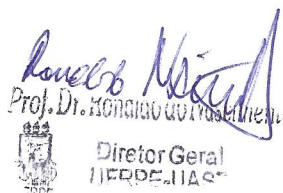 Ronaldo
Prof. Dr. Ronaldo do Nascimen
Diretor Geral
UFRPE-UAST